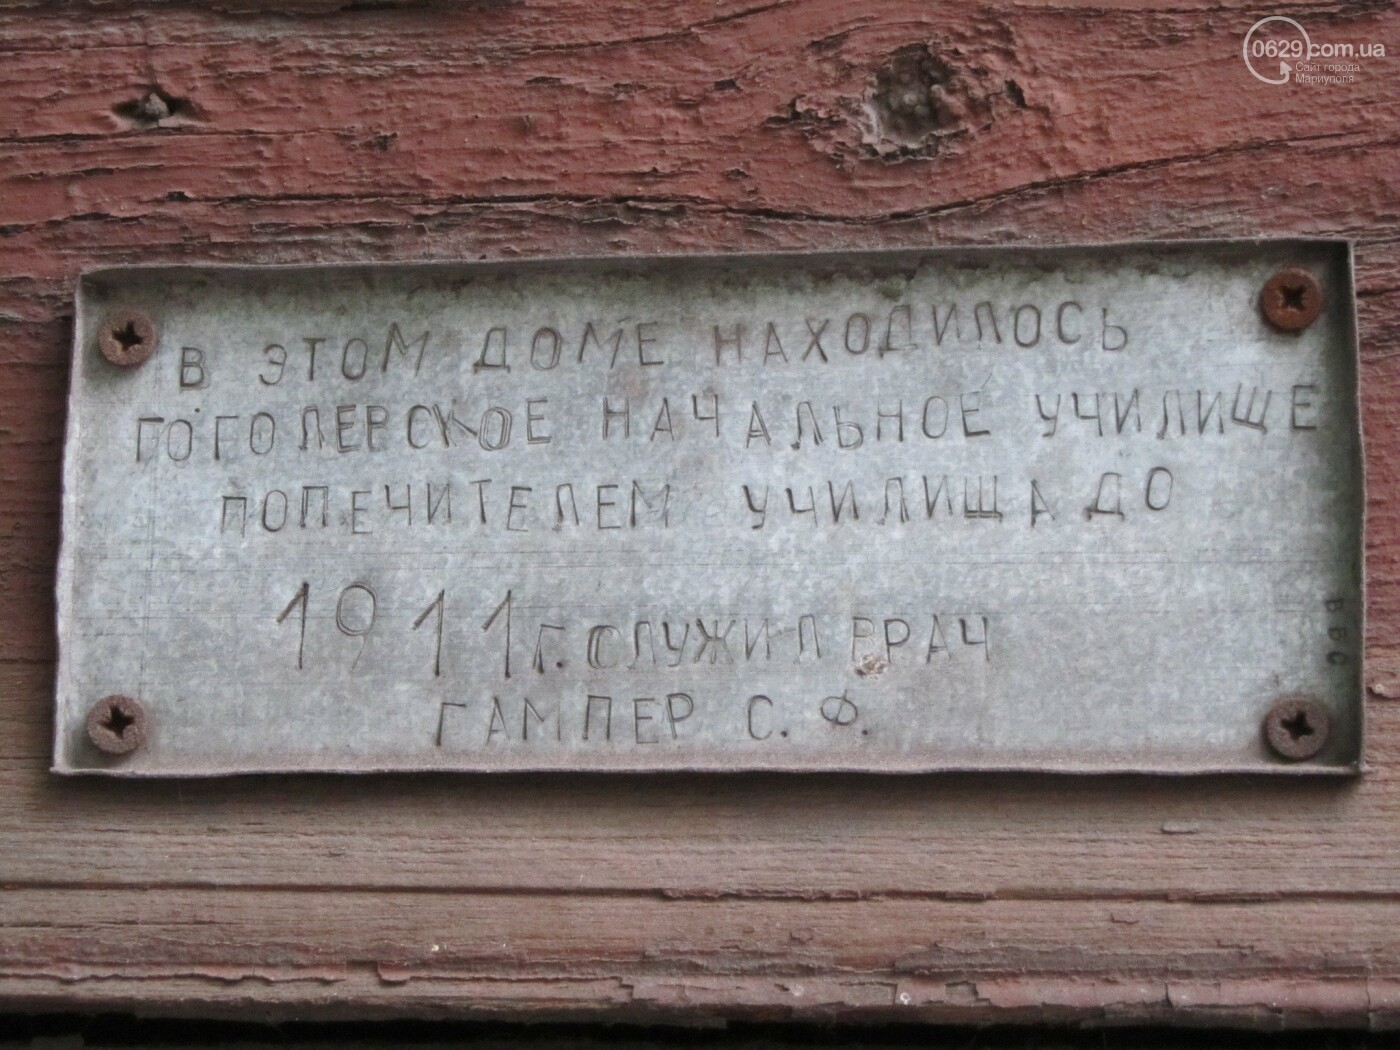 0629.com.ua
Сайт города
Мариуполя
В ЭТОМ ДОМЕ НАХОДИЛОСЬ
ГОГОЛЕРСКОЕ НАЧАЛЬНОЕ УЧИЛИЩЕ
ПОПЕЧИТЕЛЕМ УЧИЛИЩА ДО
1911 г. СЛУЖИЛ ВРАЧ
ГАМПЕР С. Ф.
ВВС